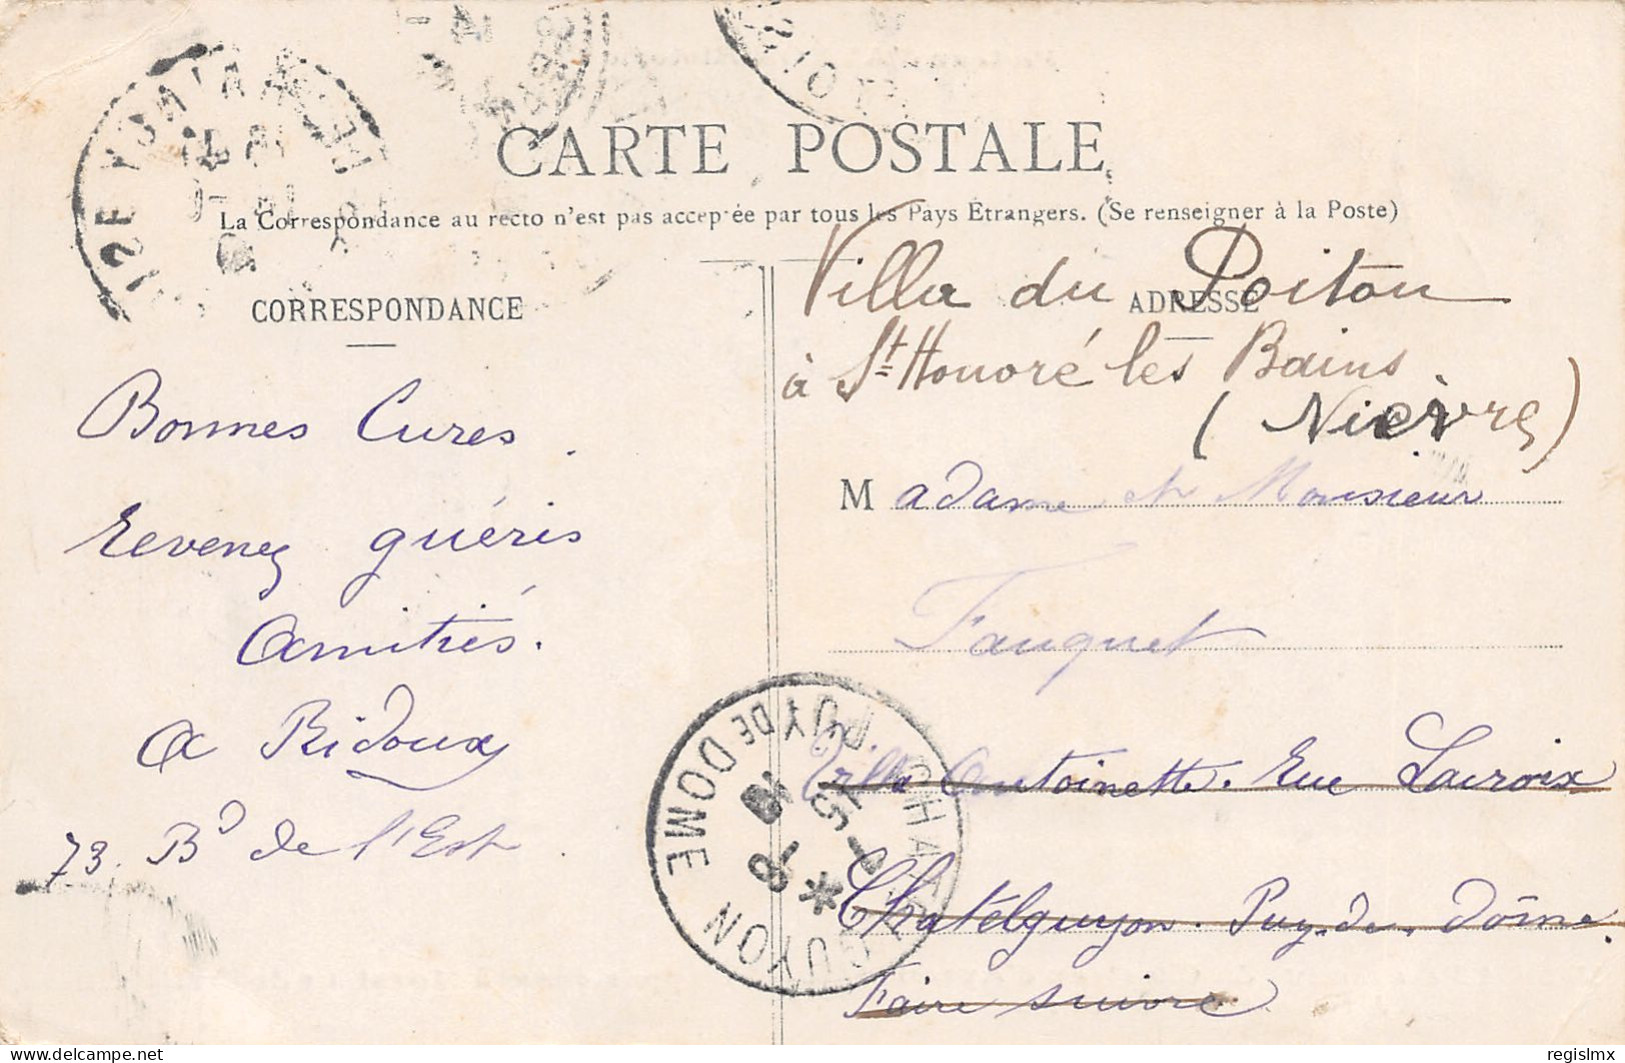 CARTE POSTALE
La Correspondance au recto n'est pas acceptée par tous les Pays Étrangers. (Se renseigner à la Poste)
CORRESPONDANCE
Bonnes Cures.
Revenez guéris
Amitiés.
A Ridoux
73. Bd de l'Est.
ADRESSE
Villa du Poitou
à St Honoré les Bains
(Nièvre)
Madame et Monsieur
Fauquet
Villa Antoinette. Rue Lacroix
Chatelguyon. Puy-de-Dôme.
Faire suivre
CHATELGUYON
PUY DE DOME
delcampe.net
regislmx